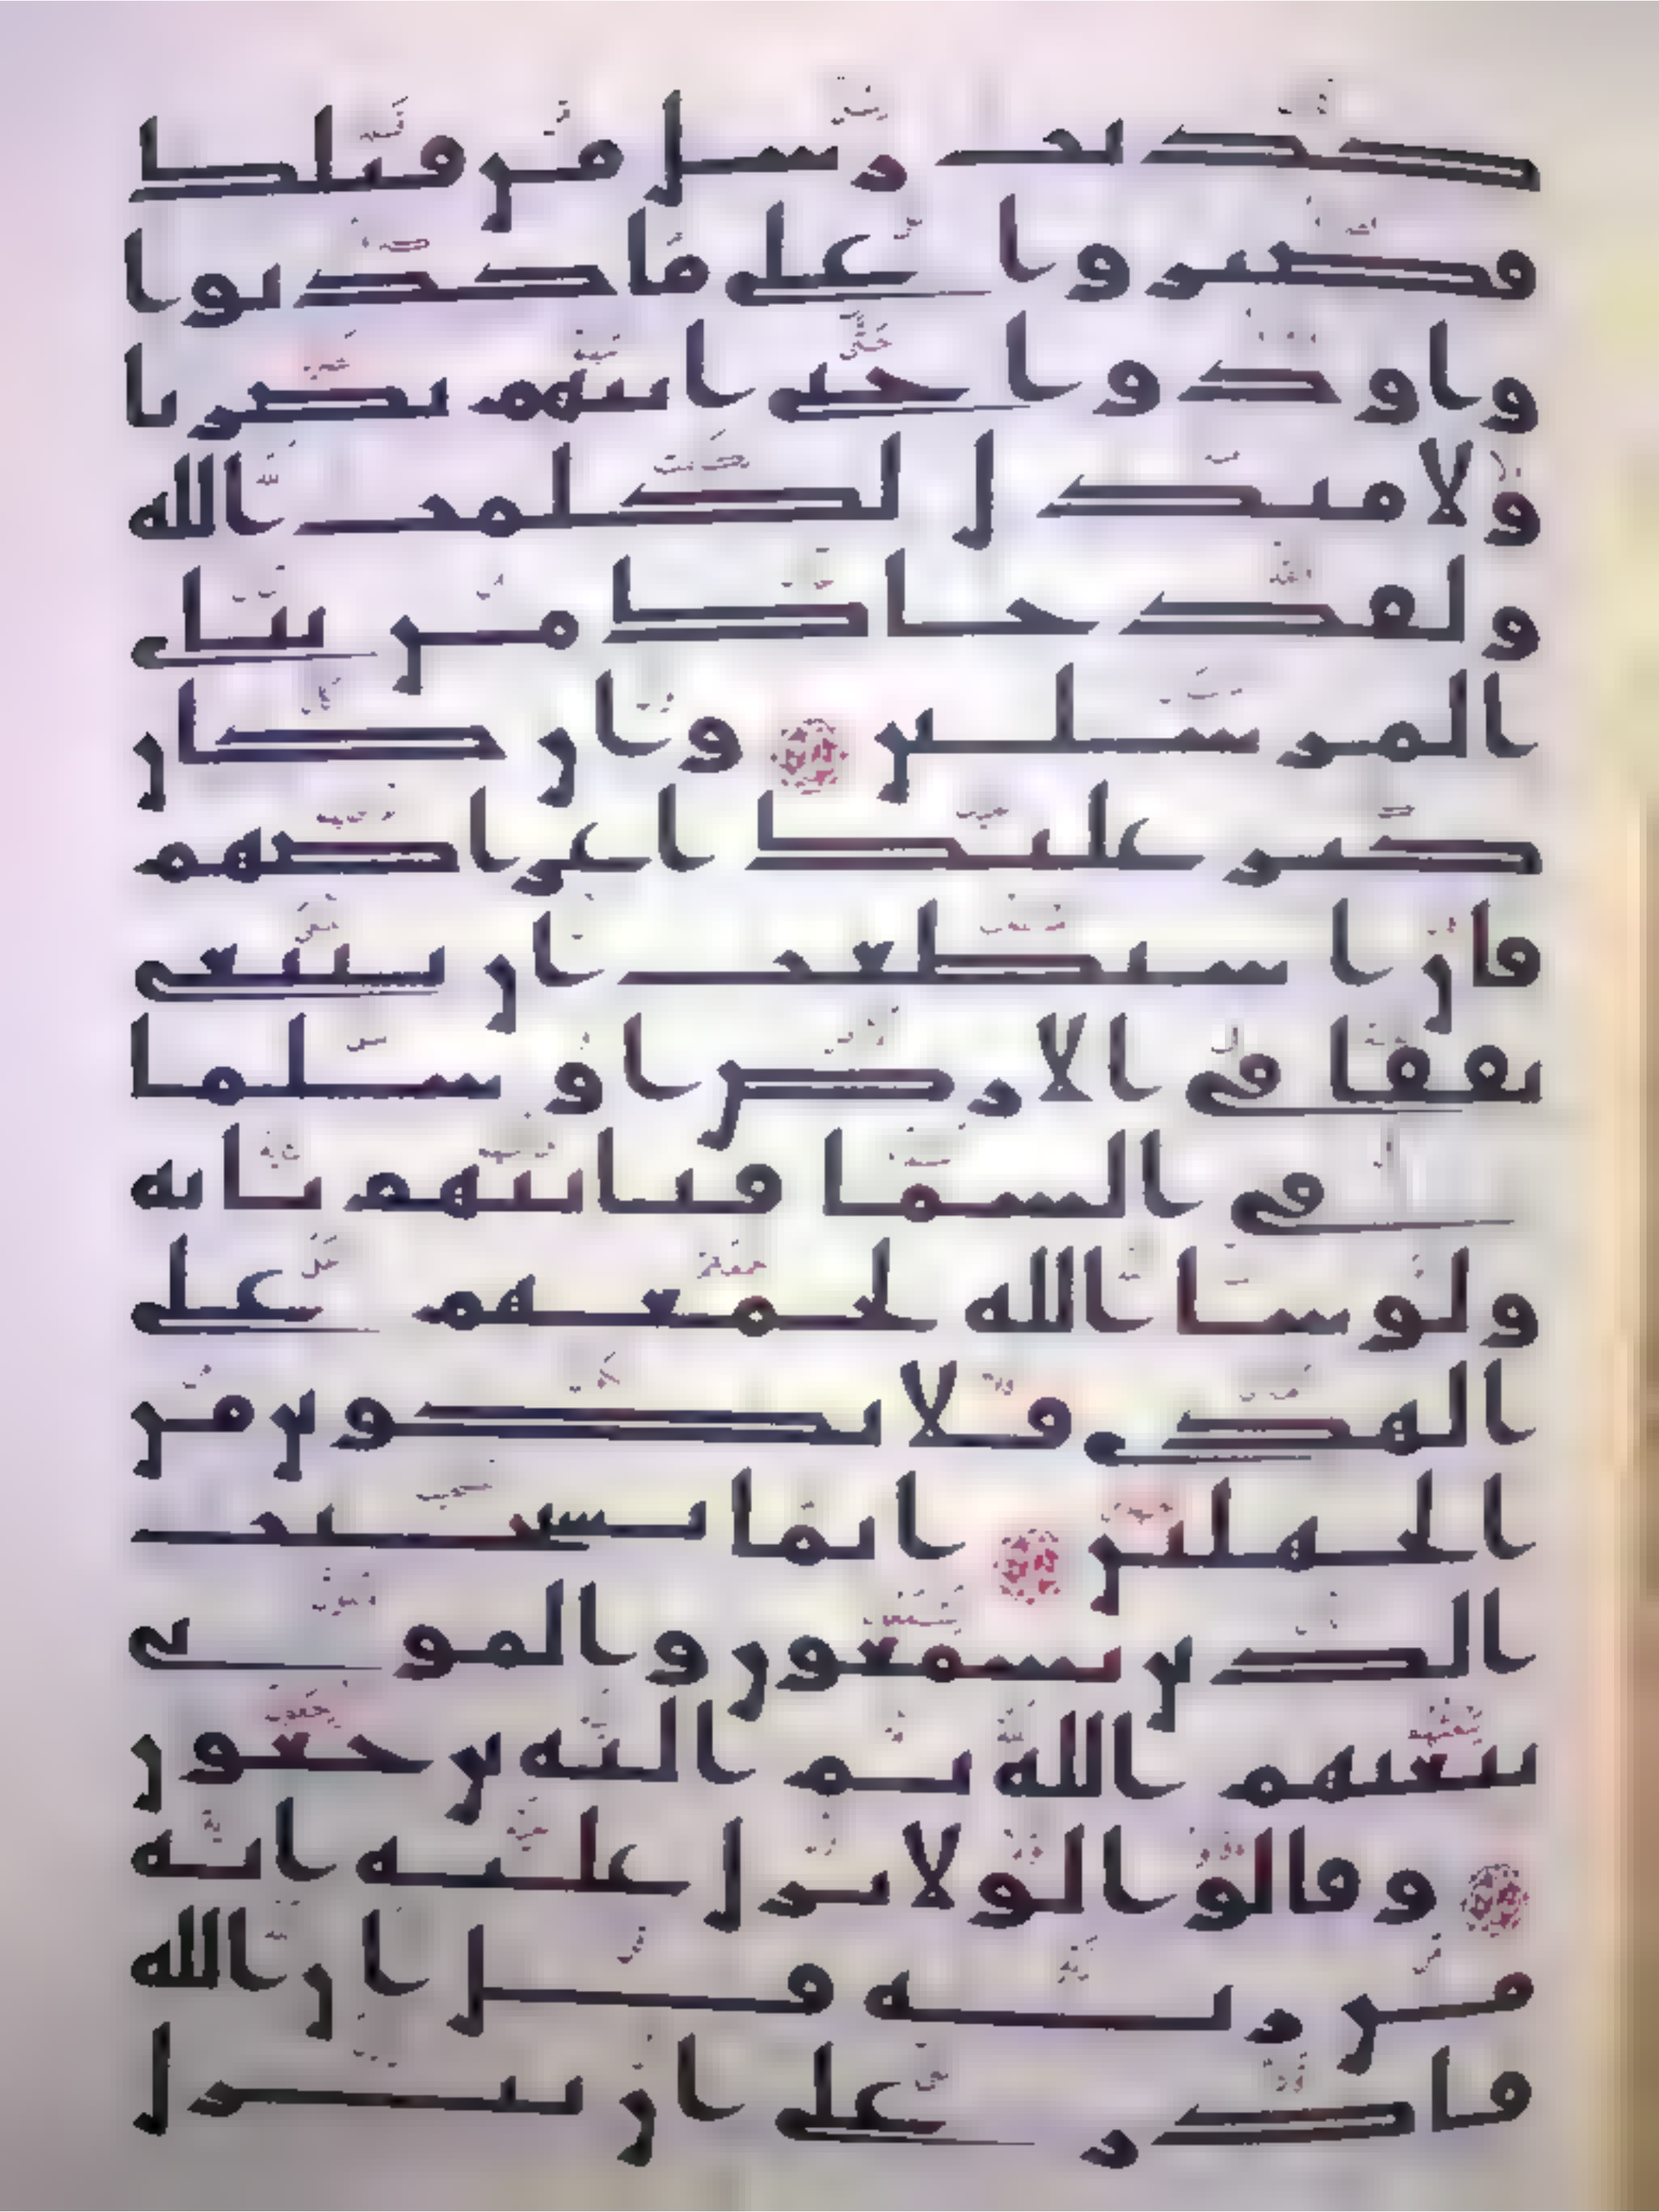 كذبت رسل من قبلك
فصبروا على ما كذبوا
واوذوا حتى اتيهم نصرنا
ولا مبدل لكلمت الله
ولقد جاك من نباى
المرسلين وان كان
كبر عليك اعراضهم
فان استطعت ان تبتغى
نفقا فى الارض او سلما
فى السما فتاتيهم بايه
ولو شا الله لجمعهم على
الهدى فلا تكونن من
الجهلين انما يستجيب
الذين يسمعون والموتى
يبعثهم الله ثم اليه يرجعون
وقالوا لولا نزل عليه ايه
من ربه قل ان الله
قادر على ان ينزل